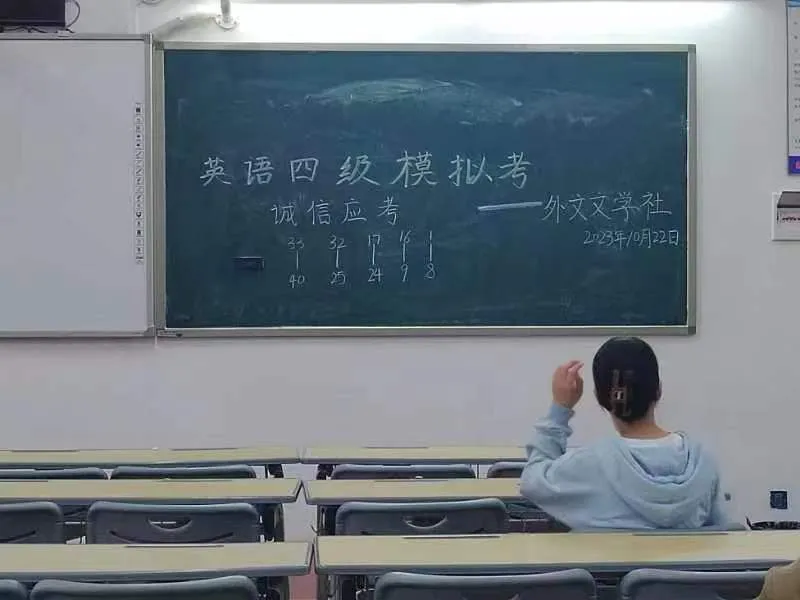 英语四级模拟考
诚信应考 ——外文文学社
2023年10月22日
33 32 17 16 1
40 25 24 9 8